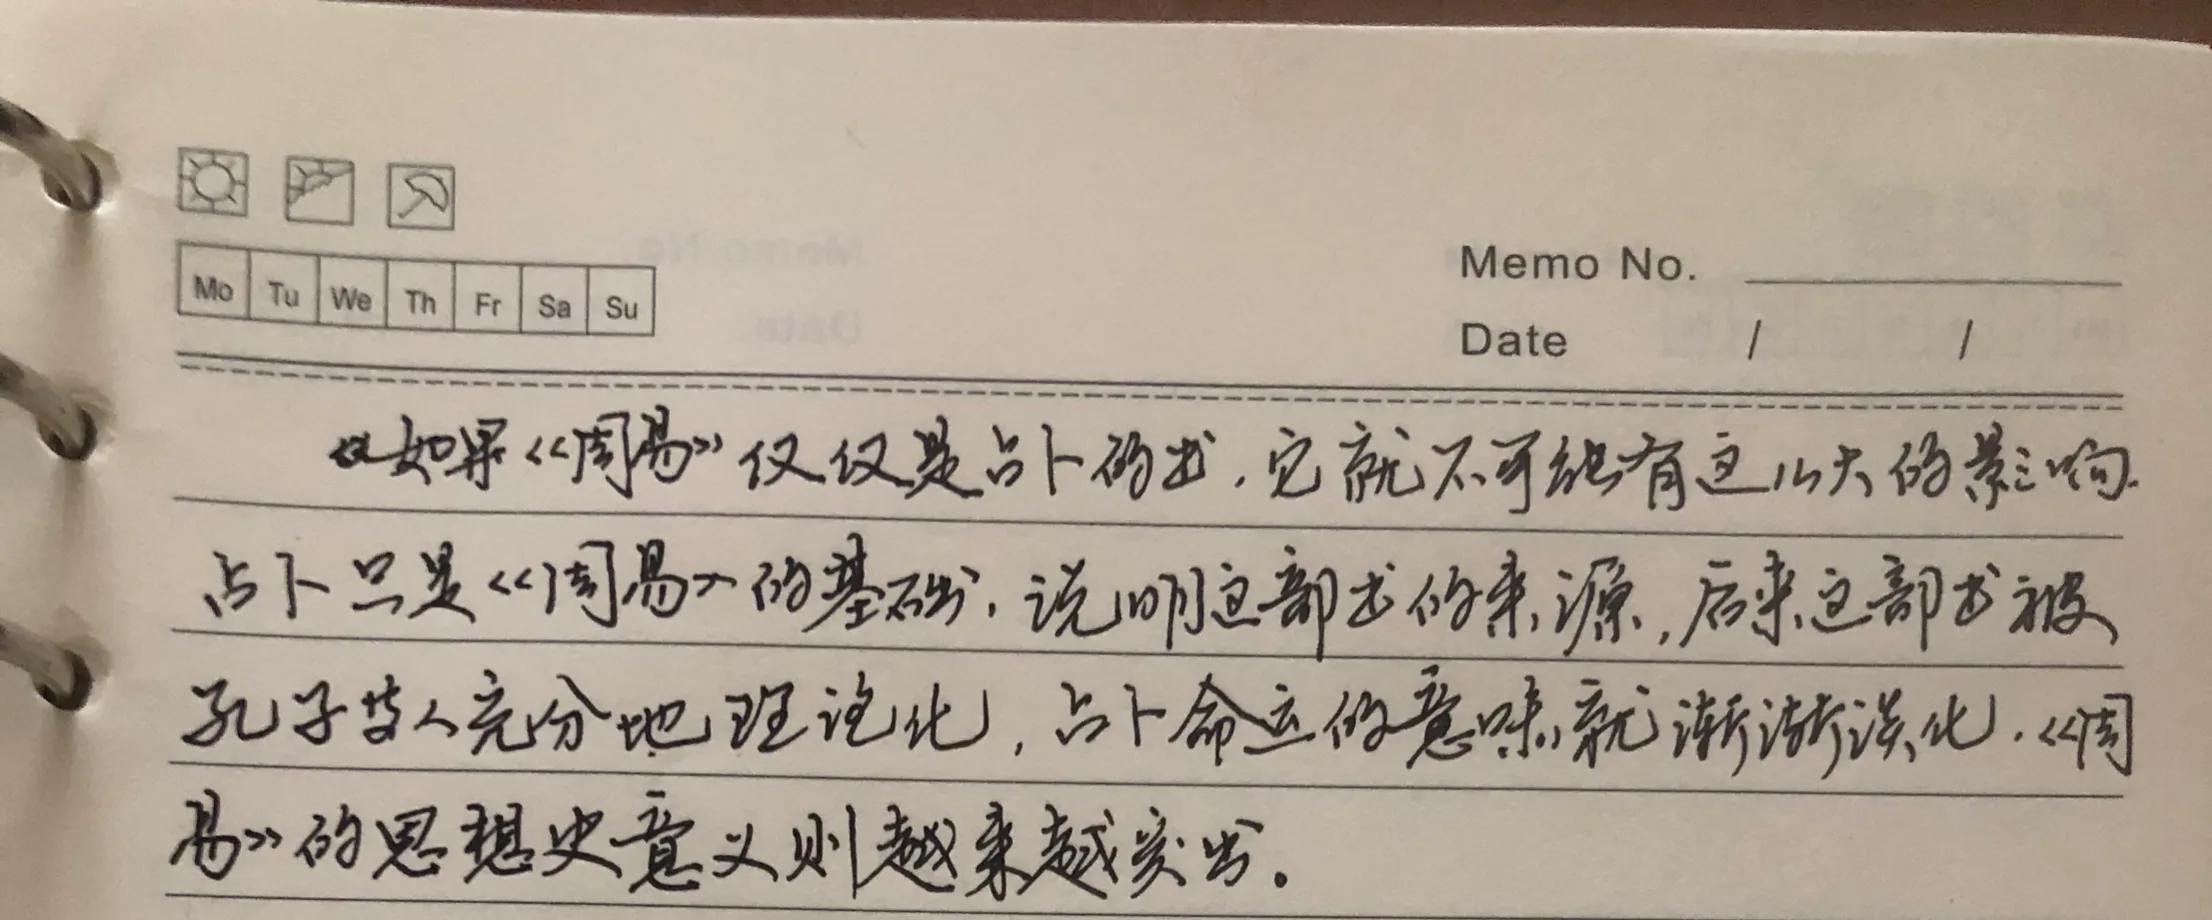 Memo No.
Mo Tu We Th Fr Sa Su
Date / /
如果《周易》仅仅是占卜的书，它就不可能有这么大的影响.
占卜只是《周易》的基础，说明这部书的来源，后来这部书被
孔子等人充分地理论化，占卜命运的意味就渐渐淡化.《周
易》的思想史意义则越来越突出。